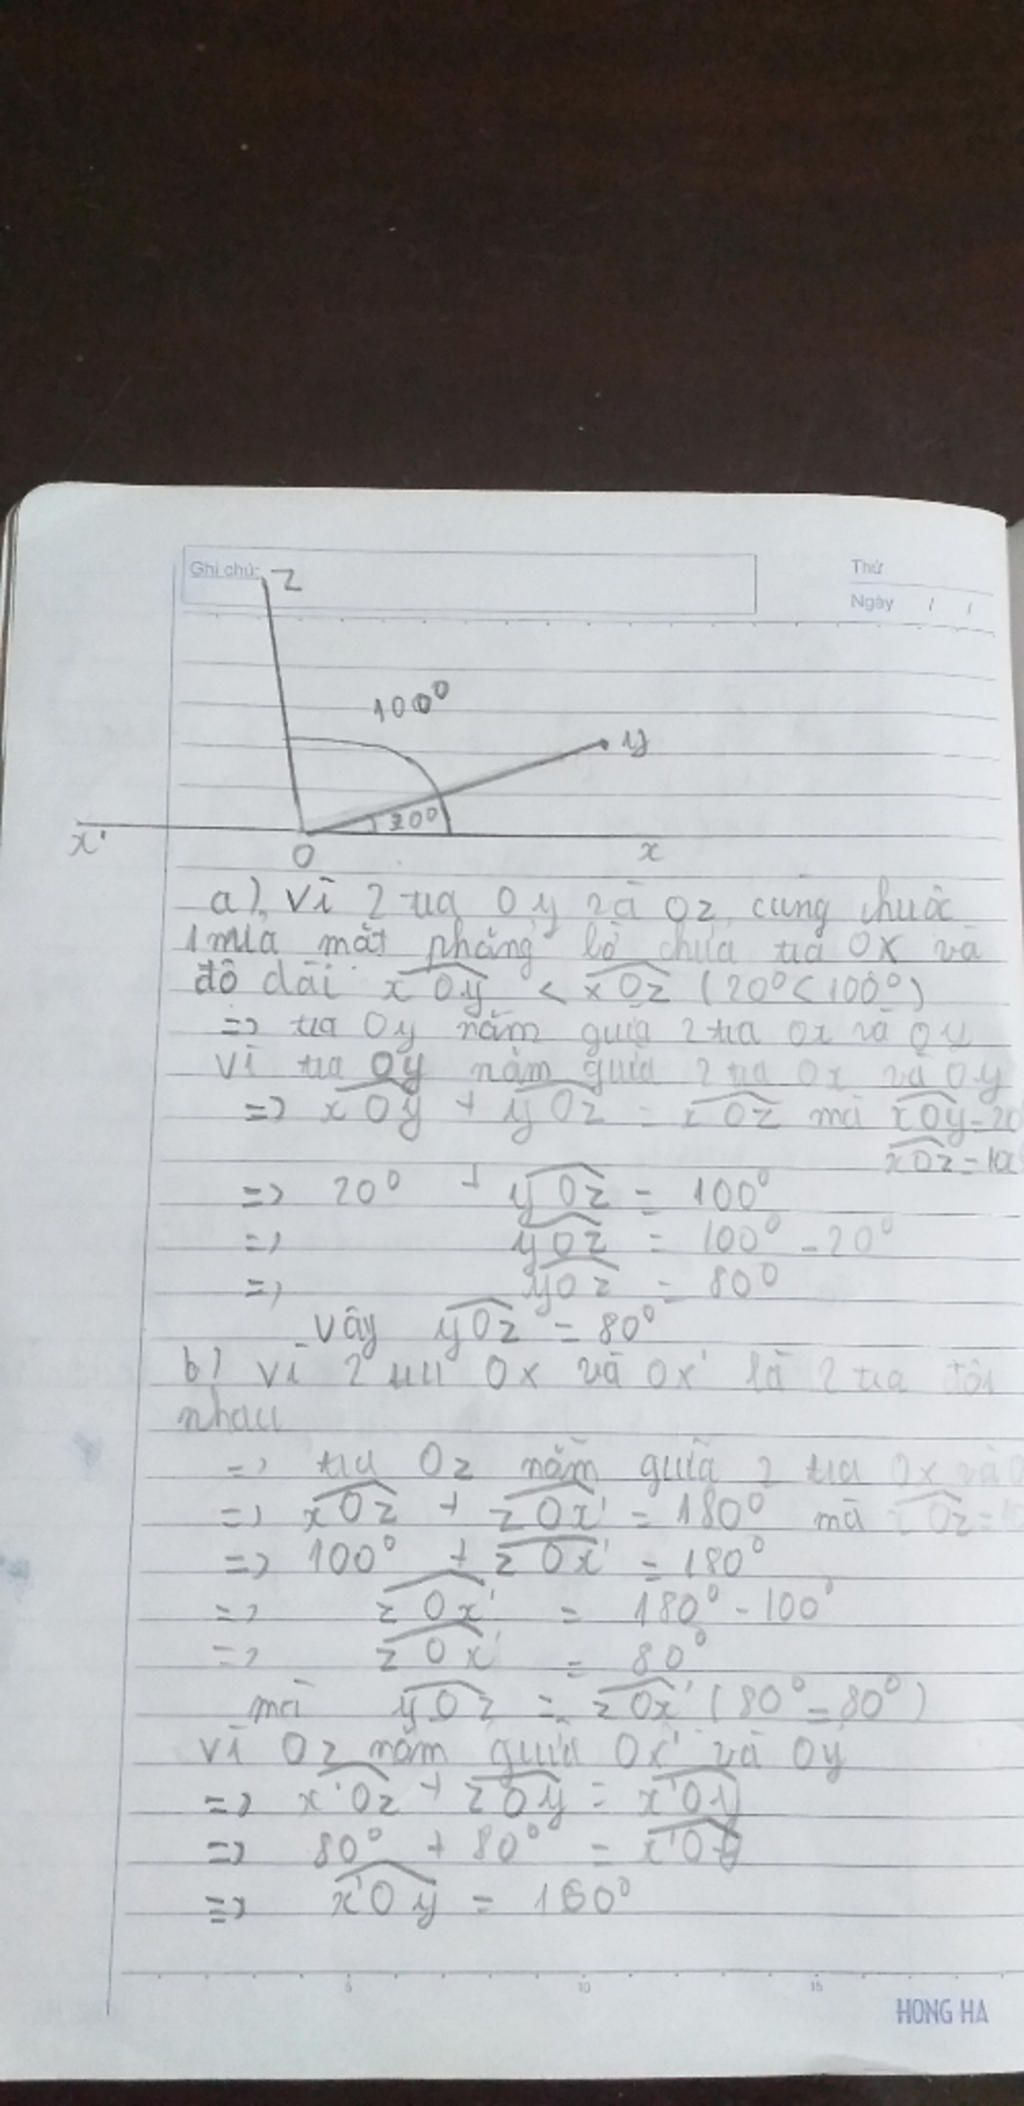 Ghi chú:
Thứ
Ngày / /
z
100⁰
y
20⁰
x'
O
x
a), Vì 2 tia Oy và Oz cùng thuộc
1 nửa mặt phẳng bờ chứa tia OX và
độ dài xOy < xOz (20⁰ < 100⁰)
=> tia Oy nằm giữa 2 tia Ox và Oy
Vì tia Oy nằm giữa 2 tia Ox và Oy
=> xOy + yOz = xOz mà xOy = 20
xOz = 10
=> 20⁰ + yOz = 100⁰
=> yOz = 100⁰ - 20⁰
=> yOz = 80⁰
Vậy yOz = 80⁰
b) Vì 2 tia Ox và Ox' là 2 tia đối
nhau
=> tia Oz nằm giữa 2 tia Ox và O
=> xOz + zOx' = 180⁰ mà xOz =
=> 100⁰ + zOx' = 180⁰
=> zOx' = 180⁰ - 100⁰
=> zOx' = 80⁰
mà yOz = zOx' (80⁰ = 80⁰)
Vì Oz nằm giữa Ox' và Oy
=> x'Oz + zOy = x'Oy
=> 80⁰ + 80⁰ = x'Oy
=> x'Oy = 160⁰
5 10 15
HONG HA